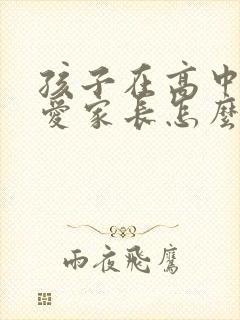 孩子在高中
愛家長怎麼
雨夜飛鷹